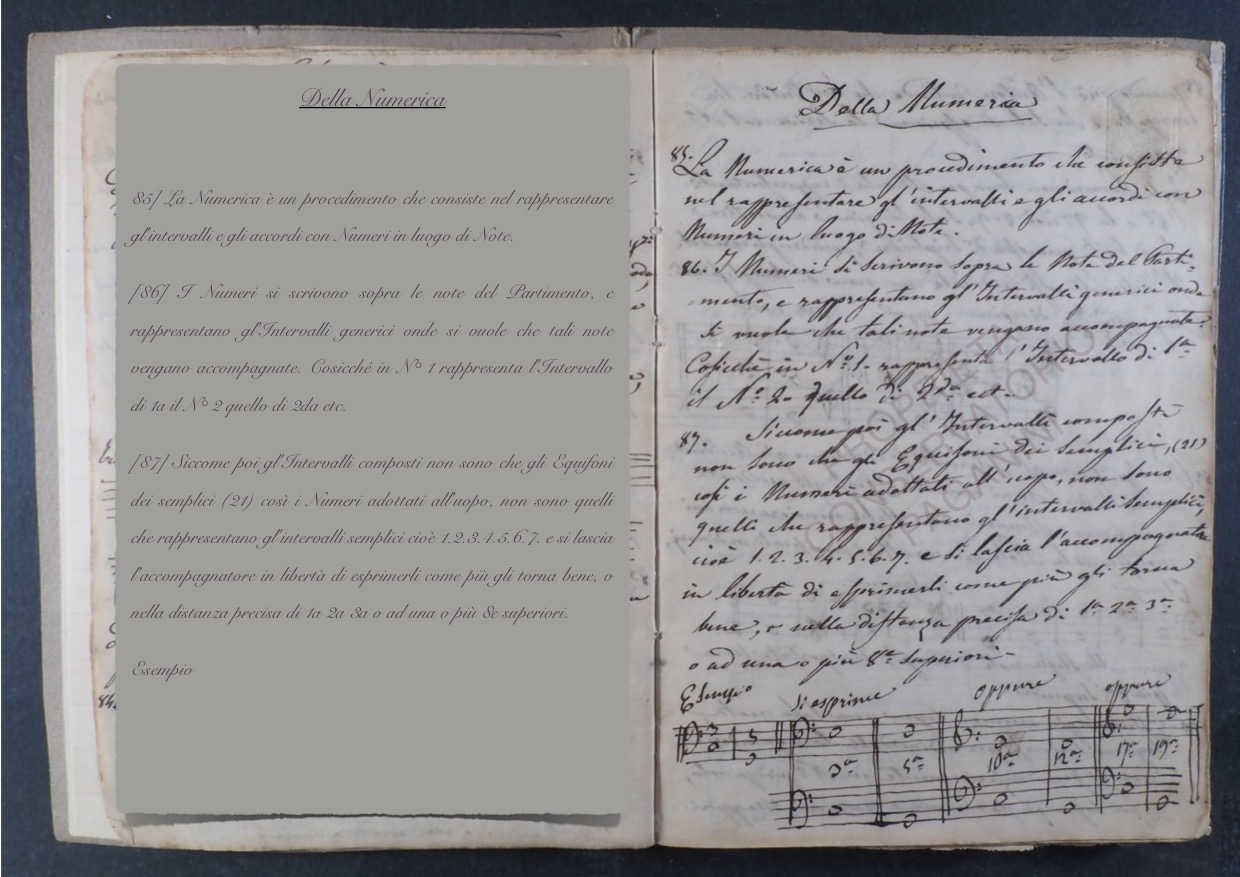 Della Numerica
85] La Numerica è un procedimento che consiste nel rappresentare
gl'intervalli e gli accordi con Numeri in luogo di Note.
[86] I Numeri si scrivono sopra le note del Partimento, e
rappresentano gl'Intervalli generici onde si vuole che tali note
vengano accompagnate. Cosicché in Nº 1 rappresenta l'Intervallo
di 1a il Nº 2 quello di 2da etc.
[87] Siccome poi gl'Intervalli composti non sono che gli Equifoni
dei semplici (21) così i Numeri adottati all'uopo, non sono quelli
che rappresentano gl'intervalli semplici cioè 1.2.3.4.5.6.7. e si lascia
l'accompagnatore in libertà di esprimerli come più gli torna bene, o
nella distanza precisa di 1a 2a 3a o ad una o più 8e superiori.
Esempio
Della Numerica
85. La Numerica è un procedimento che consiste
nel rappresentare gl'intervalli e gli accordi con
Numeri in luogo di Note.
86. I Numeri si scrivono sopra le Note del Parti=
=mento, e rappresentano gl'Intervalli generici onde
si vuole che tali note vengano accompagnate.
Cosicchè in Nº 1- rappresenta l'Intervallo di 1ª
il Nº 2. quello di 2da ect.
87. Siccome poi gl'Intervalli composti
non sono che gli Equifoni dei semplici, (21)
così i Numeri adottati all'uopo, non sono
quelli che rappresentano gl'intervalli semplici,
cioè 1. 2. 3. 4. 5. 6. 7. e si lascia l'accompagnatore
in libertà di esprimerli come più gli torna
bene, o nella distanza precisa di 1ª 2ª 3ª
o ad una o più 8e superiori-
Esempio si esprime oppure oppure
3 5
3ª 5ª 10ª 12ª 17ª 19ª
PROPRIETÀ
CONSERVATORIO
PAGANINI